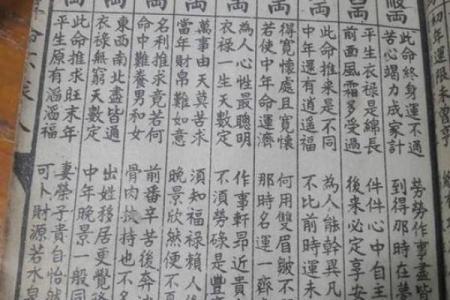 初年運限未曾亨
此命終身運不通
勞勞作事盡皆
苦心竭力成家計
到得那時在夢
平生衣祿是綿長
件件心中自主
前面風霜多受過
後來必定享安
此命推來是不同
為人能幹異凡
中年還有逍遥福
不比前時運未
得寬懷處且寬懷
何用雙眉皺不
若使中年命運濟
那時名運一齊
為人心性最聰明
作事軒昂近貴
衣祿一生天數定
不須勞碌是豐
萬事由天莫苦求
須知福祿賴人
當年財帛難如意
晚景欣然便不
名利推求竟若何
前番辛苦後奔
命中難養男和女
骨肉扶持也不
東西南北盡皆通
出姓移居更覺
衣祿無窮天數定
中年晚景一般同
此命推求旺末年
妻榮子貴自怡然
平生原有滔滔福
可卜財源若水泉